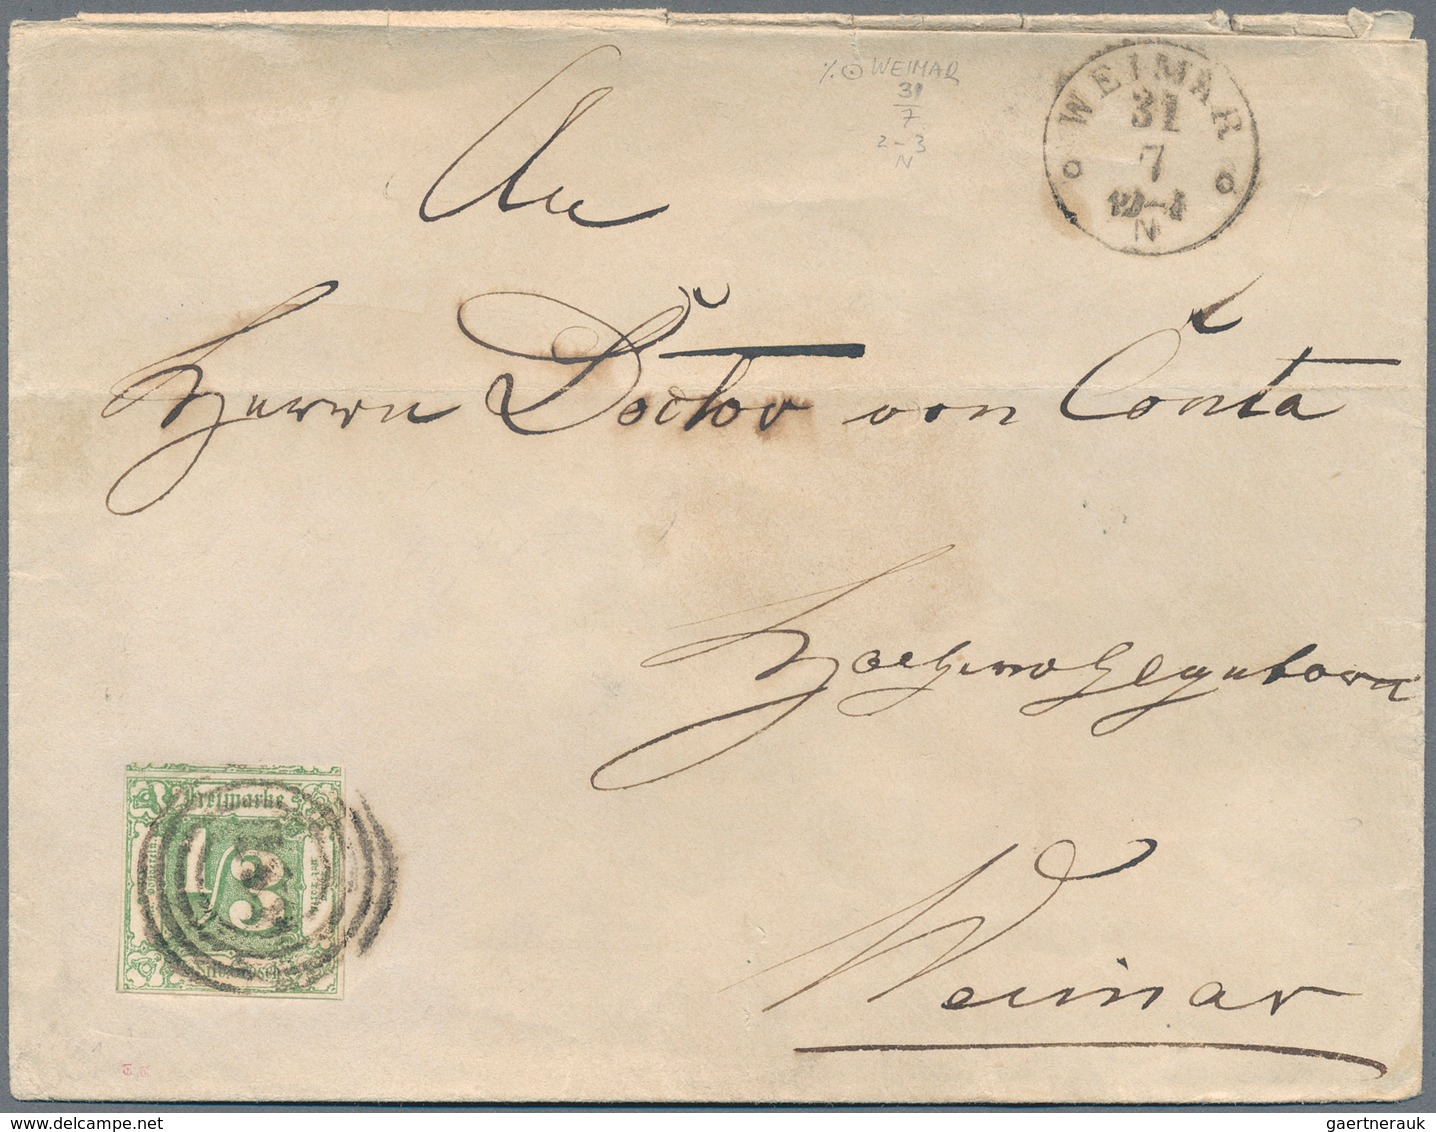 % ⊙ WEIMAR
31
7
2-3
N
WEIMAR
31
7
12-1
N
An
Herrn Doctor von Conta
Hochwohlgeboren
Weimar
Freimarke
1/3
Silb. Grosch.
gaertnerauk@yahoo.com